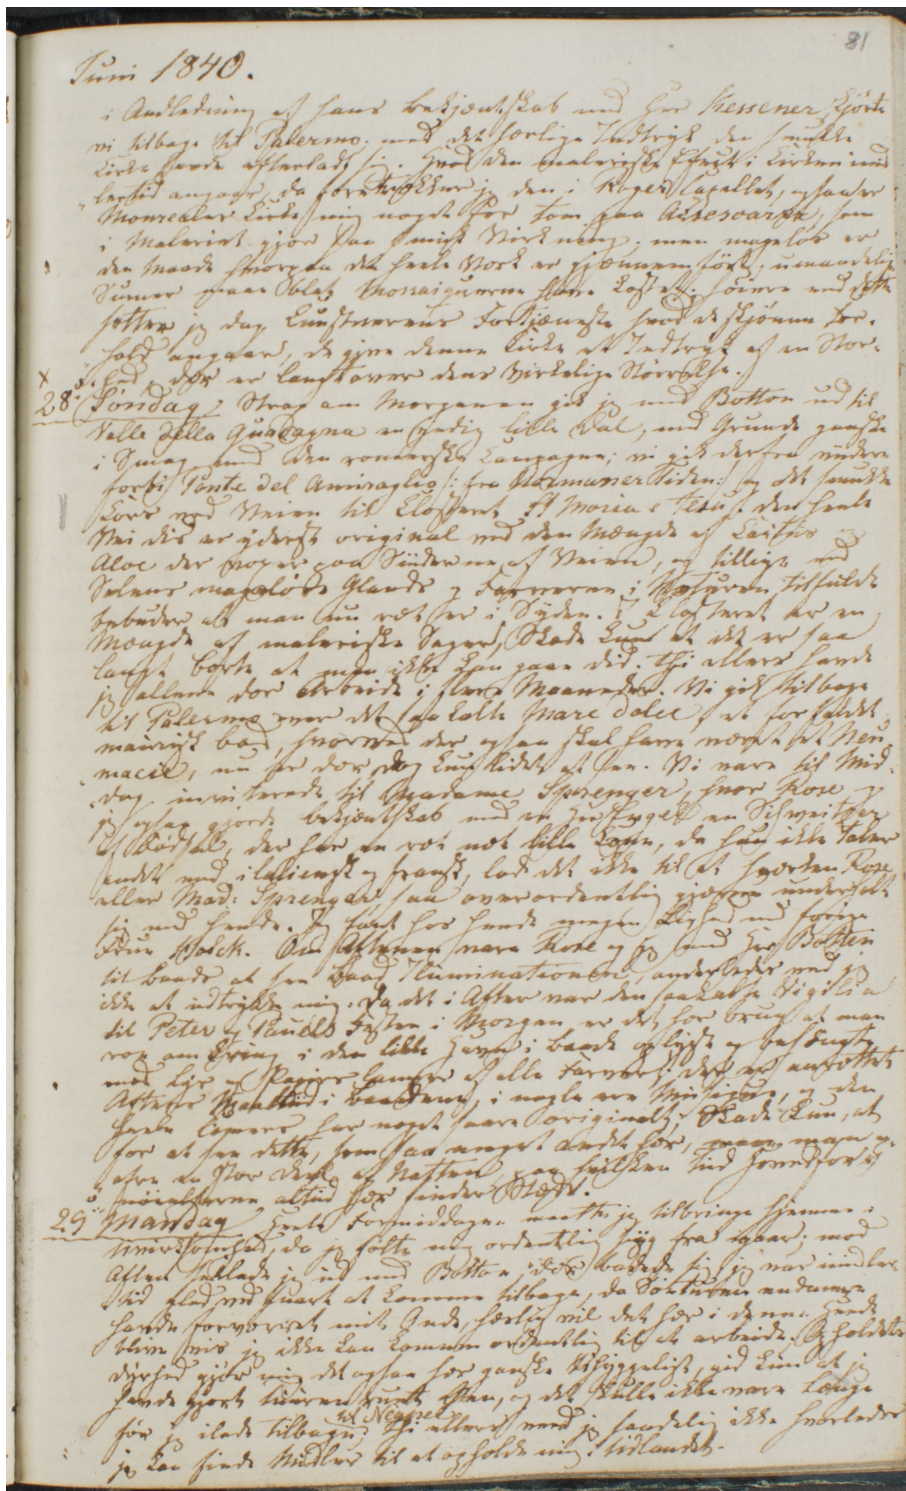 81
Juni 1840.
i Andledning af hans bekjentskab med Herr Kessener kjørte
vi tilbage til Palermo, med det herlige Indtryk den smukke
Kirke havde efterladt sig. Hvad den maleriske Effect i Kirken imid
lertid angaaer, da foretrækker jeg den i Roger Capellet, ogsaa er
Monreales Kirke mig noget for tom paa Accesoarer, som
i Maleriet gjør saa smuk Virkning; men mageløs er
den Maade hvorpaa det heele Værk er gjennemført, umaadelig
Summer maae blot Mosaiquerne have kostet; høiere end dette
sætter jeg dog Kunstnerens Fortjæneste hvad de skjønne For-
hold angaaer, de give denne Kirke et Indtryk af en Stor-
hed, der er langt over dens virkelige Størrelse.
28 Søndag Strax om Morgenen gik jeg med Botton ud til
Valle della Guadagna en yndig lille Dal, med Grunde ganske
i Smag med den romerske Campagne; vi gik derfra videre
forbi Ponte del Amiraglio /: fra Normanner Tiden :/ og det smukke
Kors ved Veien til Closteret St Maria e Jesu. den heele
Vei did er yderst original ved den Mængde af Cactus og
Aloe der voxer paa Siiderne af Veien, og tillige ved
Solens mageløse Glands og Farverne i Naturen tilfulde
bebuder at man nu ret er i Syden. I Closteret er en
Mængde af maleriske Sager, Skade kun at det er saa
langt borte at man ikke kan gaae did. Thi ellers havde
jeg allene der Arbeide i flere Maaneder. Vi gik tilbage
til Palermo over det saa kaldte Mare dolce, et forfaldet
maurisk bad, hvorved der ogsaa skal have været et Neu
macie, nu er der dog kun lidet at see. Vi vare til Mid-
dag inviterede til Madame Sprenger, hvor Rose og
jeg ogsaa gjorde bekjentskab med en Herr Engel en Schweitzer
af bødsel, der har en ret net lille Kone, da hun ikke taler
andet end italiensk og fransk, lod det ikke til at hverken Rose
eller Mad: Sprenger saa overordentlig gjærne underholdt
sig med hende. Jeg fandt hos hende megen Lighed med forige
Frue Holck. Om Aftenen vare Rose og jeg med Herr Botton
til baads at see baad Illuminationen, anderledes veed jeg
ikke at udtrykke mig. Da det i Aften var den saakaldte Vigilia
til Peter og Pauls Festen i Morgen er det her brug at man
roer om kring i den lille Havn i baade oplyste og behængte
med Lys og Papiers Lamper af alle Farver; der er anrettet
Aftens Maaltid i baadene, i nogle ere Musiquer, og den
heele Corso har noget saare originalt; Skade kun, at
for at see dette, som saa meget andet her, maae man op-
ofre en stor Deel af Natten paa hvilken Tid Hovedfor-
nøielserne altid her finder Sted.
29 Mandag Heele Formiddagen maatte jeg tilbringe hjemme i
Uvirksomhed, da jeg følte mig ordentlig syg fra igaar; mod
Aften sællede jeg ud med Botton der badede sig, jeg var imidler
tid glad ved snart at komme tilbage, da Søeturen endnu mere
havde forværret mit Onde, hærlig vil det her i denne Heede
blive hvis jeg ikke kan komme ordentlig til at arbeide. Opholdets
dyrhed gjør mig det ogsaa her ganske uhyggeligt, gid kun at jeg
havde gjort turen rundt Øen, og det skulle ikke vare længe
før jeg ilede tilbage til Neapel, Thi ellers veed jeg sandelig ikke hvorledes
jeg kan finde Midler til at opholde mig i Udlandet.